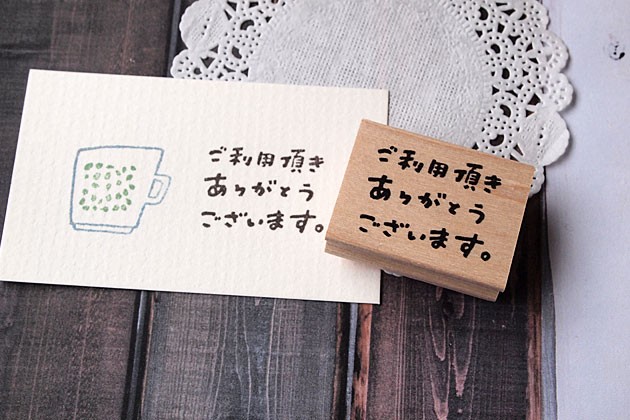 ご利用頂き
ありがとう
ございます。
ご利用頂き
ありがとう
ございます。